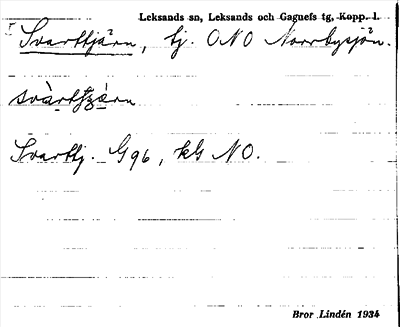 Leksands sn, Leksands och Gagnefs tg, Kopp. l.
Svarttjärn, tj. ONO Norrbysjön.
svàrttjä̀rn
Svarttj. G96, kls NO.
Bror Lindén 1934